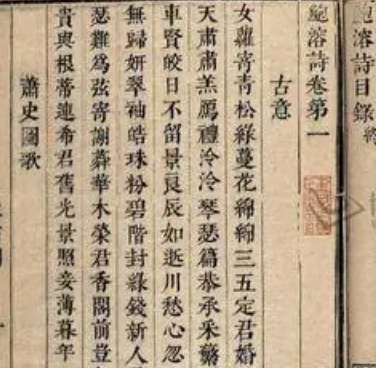 鮑溶詩目錄 終
鮑溶詩卷第一
古意
女蘿寄青松綠蔓花綿綿三五定君婚
天肅肅羔鴈禮泠泠琴瑟篇恭承采蘩
車賢皎日不留景良辰如逝川愁心忽
無歸妍翠袖皓珠粉碧階封綠錢新人
瑟難爲弦寄謝蕣華木榮君香閣前豈
貴與根蒂連希君舊光景照妾薄暮年
蕭史圖歌